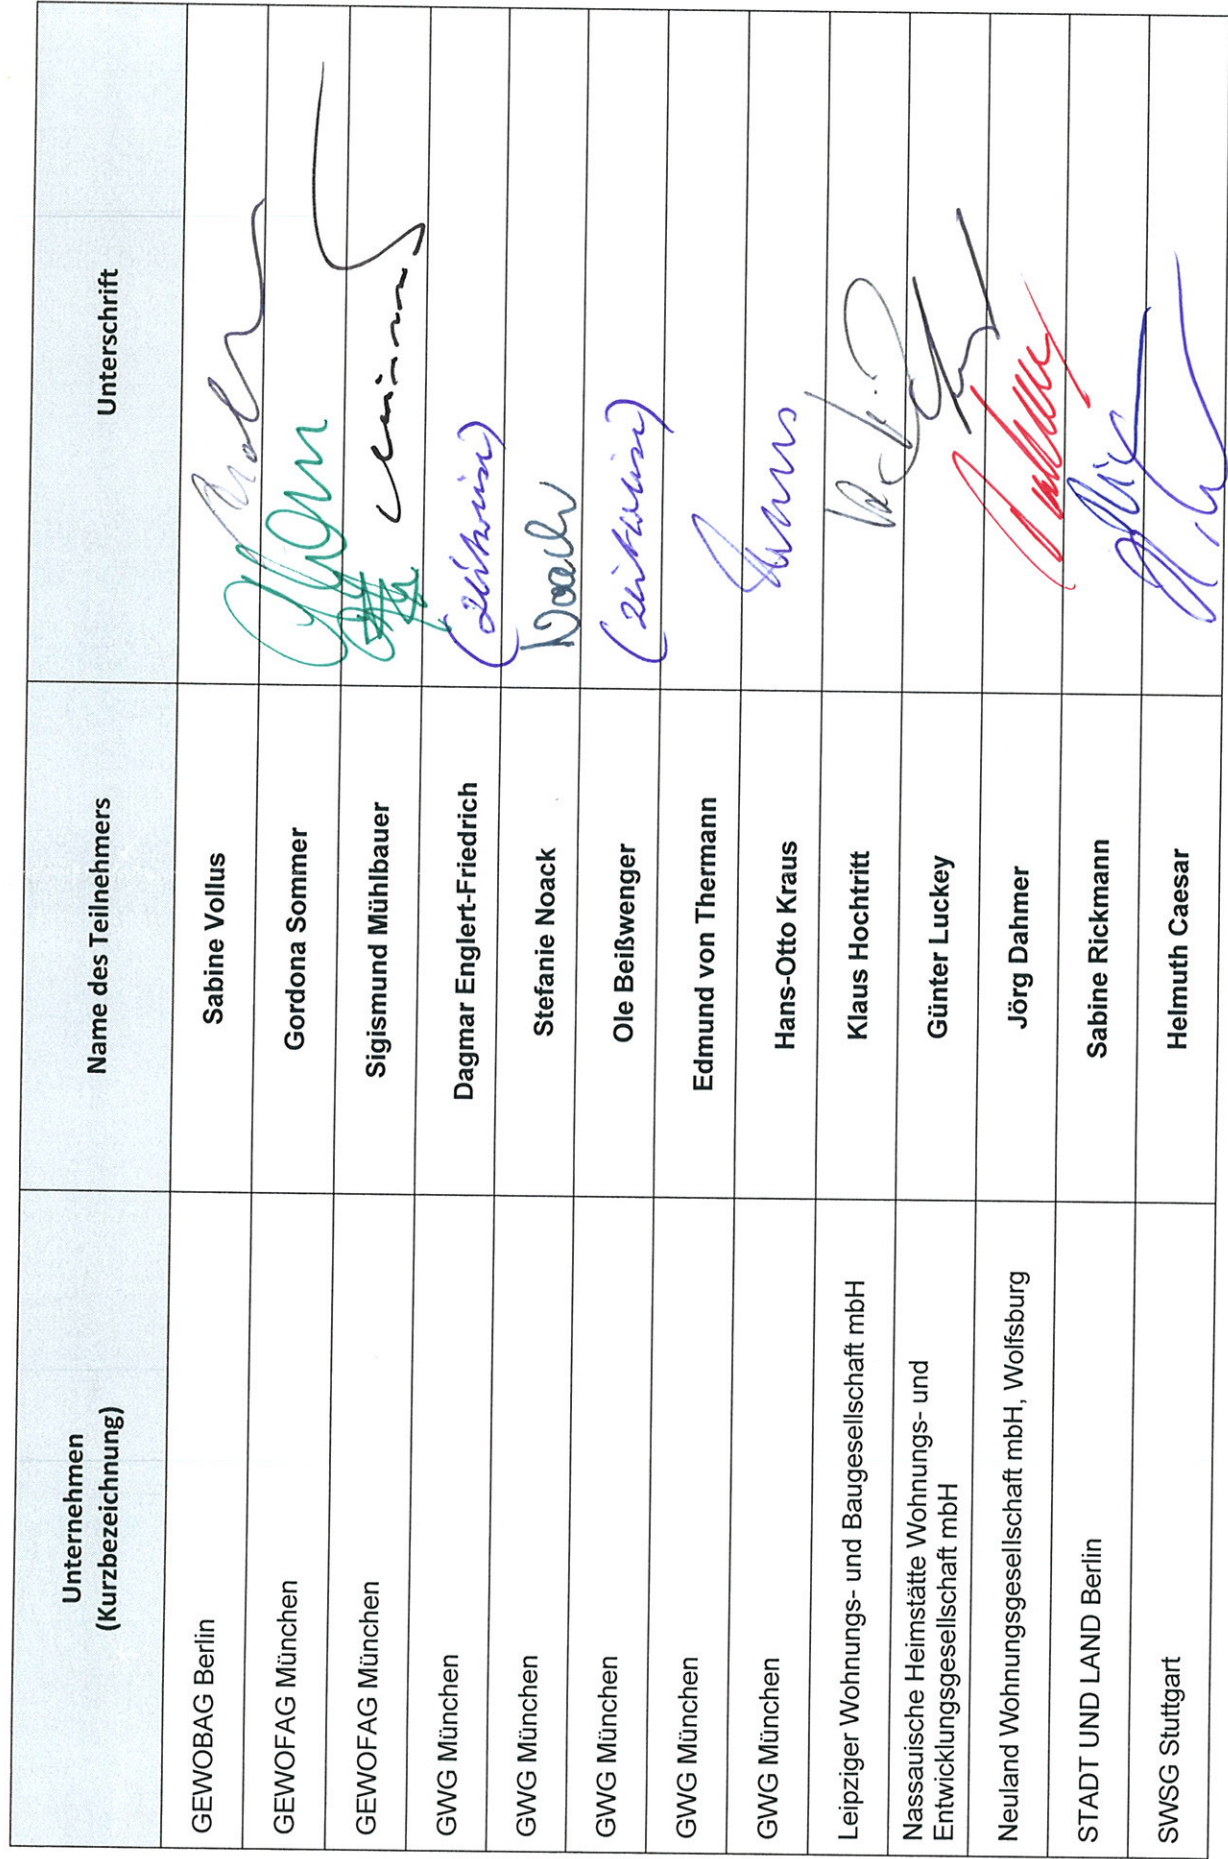 Unternehmen Name des Teilnehmers Unterschrift
(Kurzbezeichnung)
GEWOBAG Berlin Sabine Vollus
GEWOFAG München Gordona Sommer
GEWOFAG München Sigismund Mühlbauer
GWG München Dagmar Englert-Friedrich (zeitweise)
GWG München Stefanie Noack Noack
GWG München Ole Beißwenger (zeitweise)
GWG München Edmund von Thermann
GWG München Hans-Otto Kraus
Leipziger Wohnungs- und Baugesellschaft mbH Klaus Hochtritt
Nassauische Heimstätte Wohnungs- und
Entwicklungsgesellschaft mbH Günter Luckey
Neuland Wohnungsgesellschaft mbH, Wolfsburg Jörg Dahmer
STADT UND LAND Berlin Sabine Rickmann
SWSG Stuttgart Helmuth Caesar